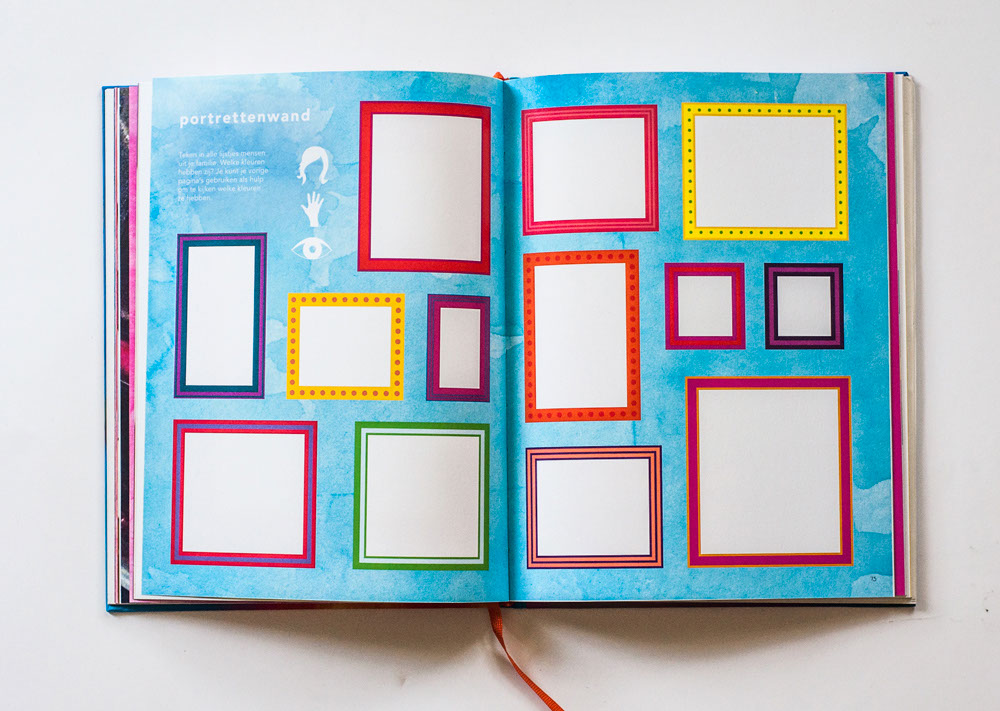 portrettenwand
Teken in alle lijstjes mensen
uit je familie. Welke kleuren
hebben zij? Je kunt je vorige
pagina's gebruiken als hulp
om te kijken welke kleuren
ze hebben.
15